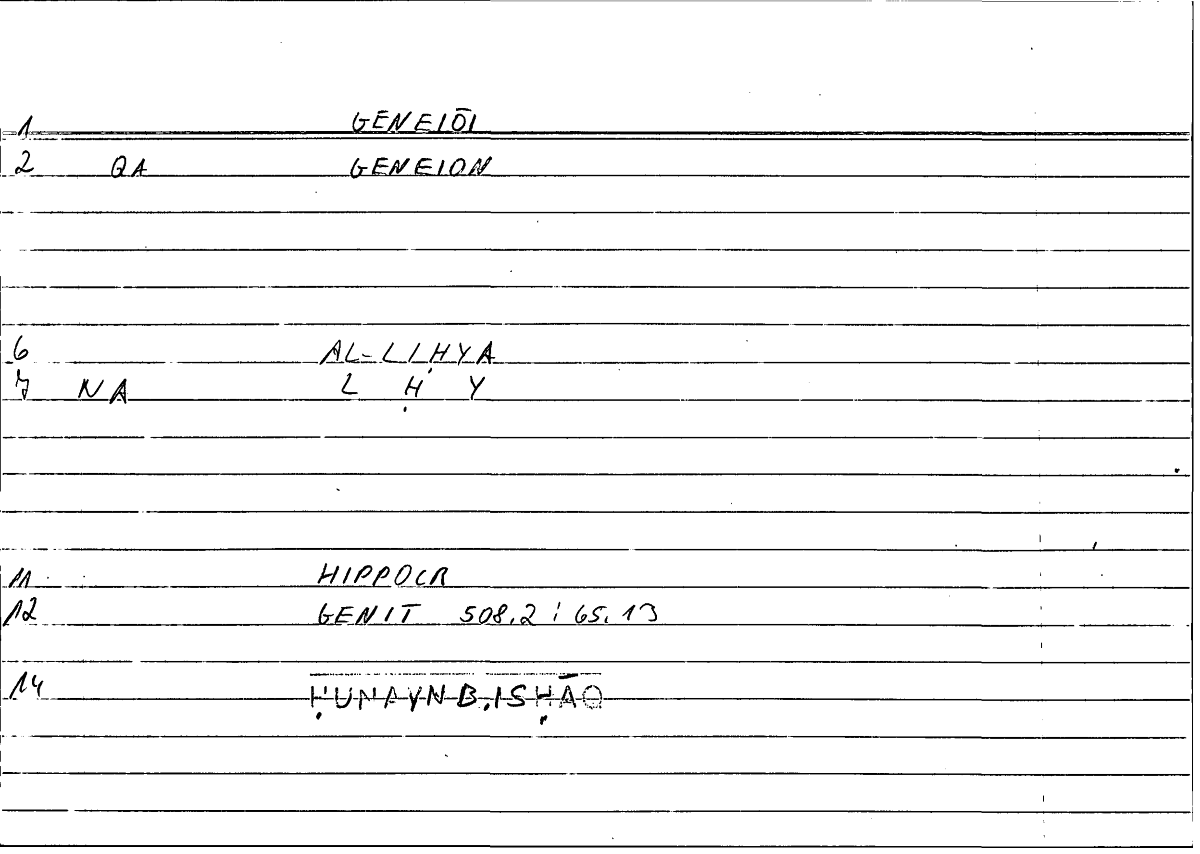 1 GENEIŌI
2 QA GENEION
6 AL-LIḤYA
7 NA L Ḥ Y
11 HIPPOCR
12 GENIT 508.2 ; 65.13
14 ḤUNAYN B. ISḤĀQ